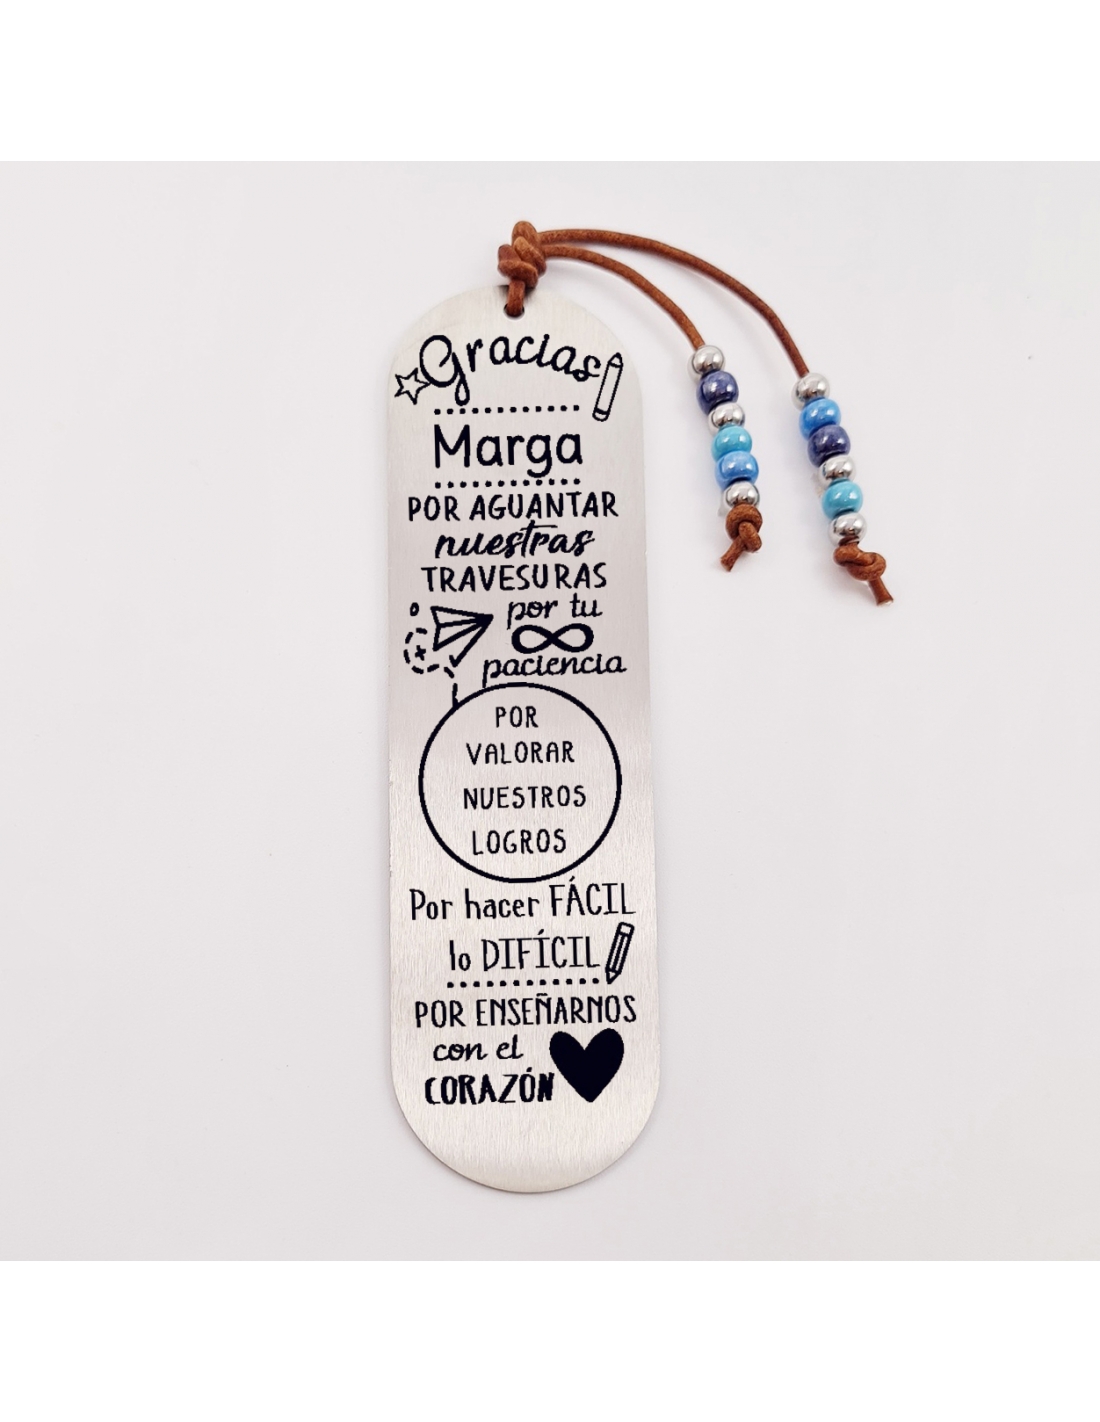 Gracias
Marga
POR AGUANTAR
nuestras
TRAVESURAS
por tu
paciencia
POR
VALORAR
NUESTROS
LOGROS
Por hacer FÁCIL
lo DIFÍCIL
POR ENSEÑARNOS
con el
CORAZÓN